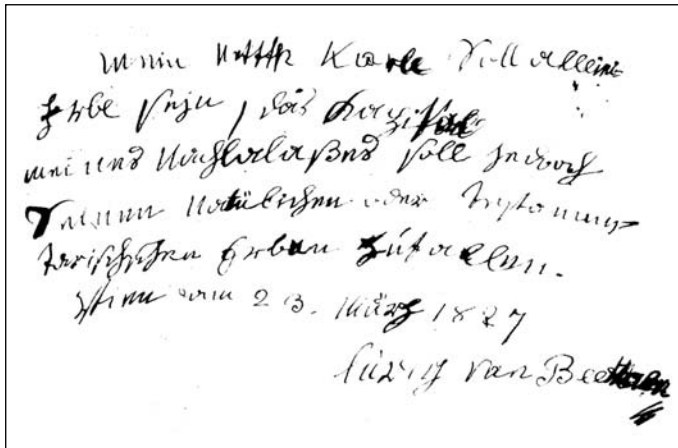 Mein Neffe Karle Soll alleine
Erbe sejn, das Kapital
meines Nachlalaßes soll jedoch
Seinen Natülichen oder testamen-
tarischschen Erben zufallen.
Wien am 23. März 1827
luwig van Beethoven